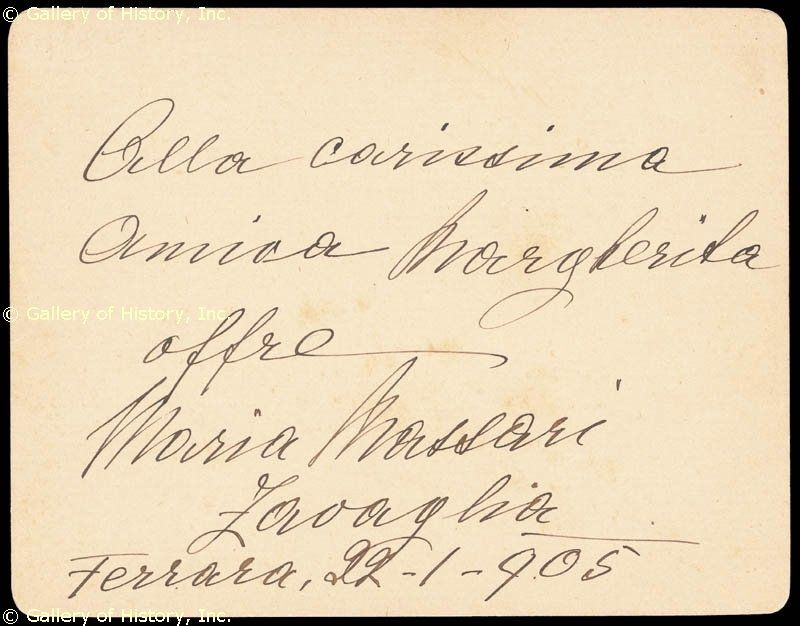 © Gallery of History, Inc.
Alla carissima
Amica Margherita
© Gallery of History, Inc.
offre
Maria Massari
Zavaglia
Ferrara, 22-1-905
© Gallery of History, Inc.